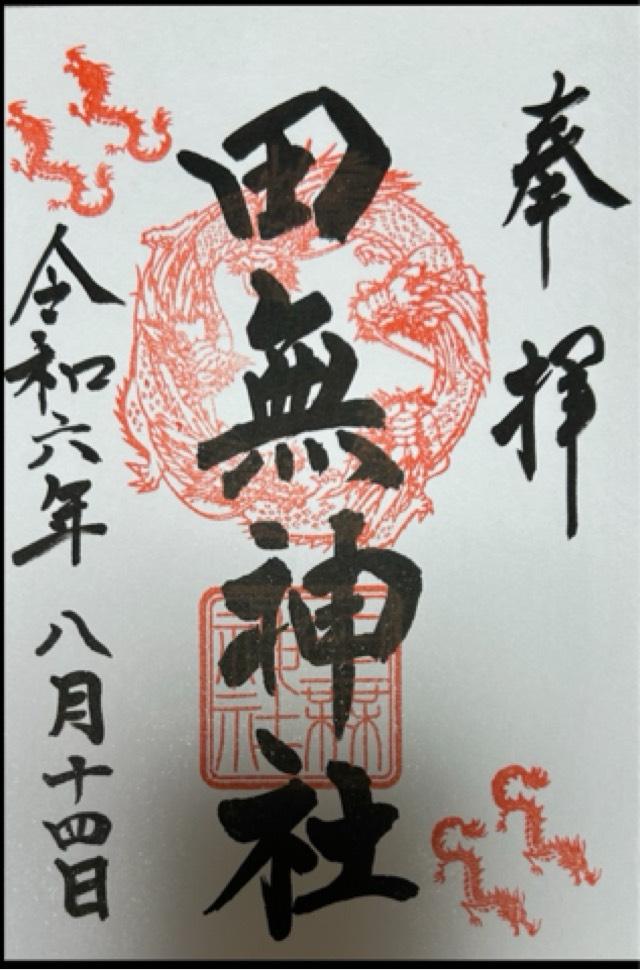 奉拝
田無神社
令和六年 八月十四日